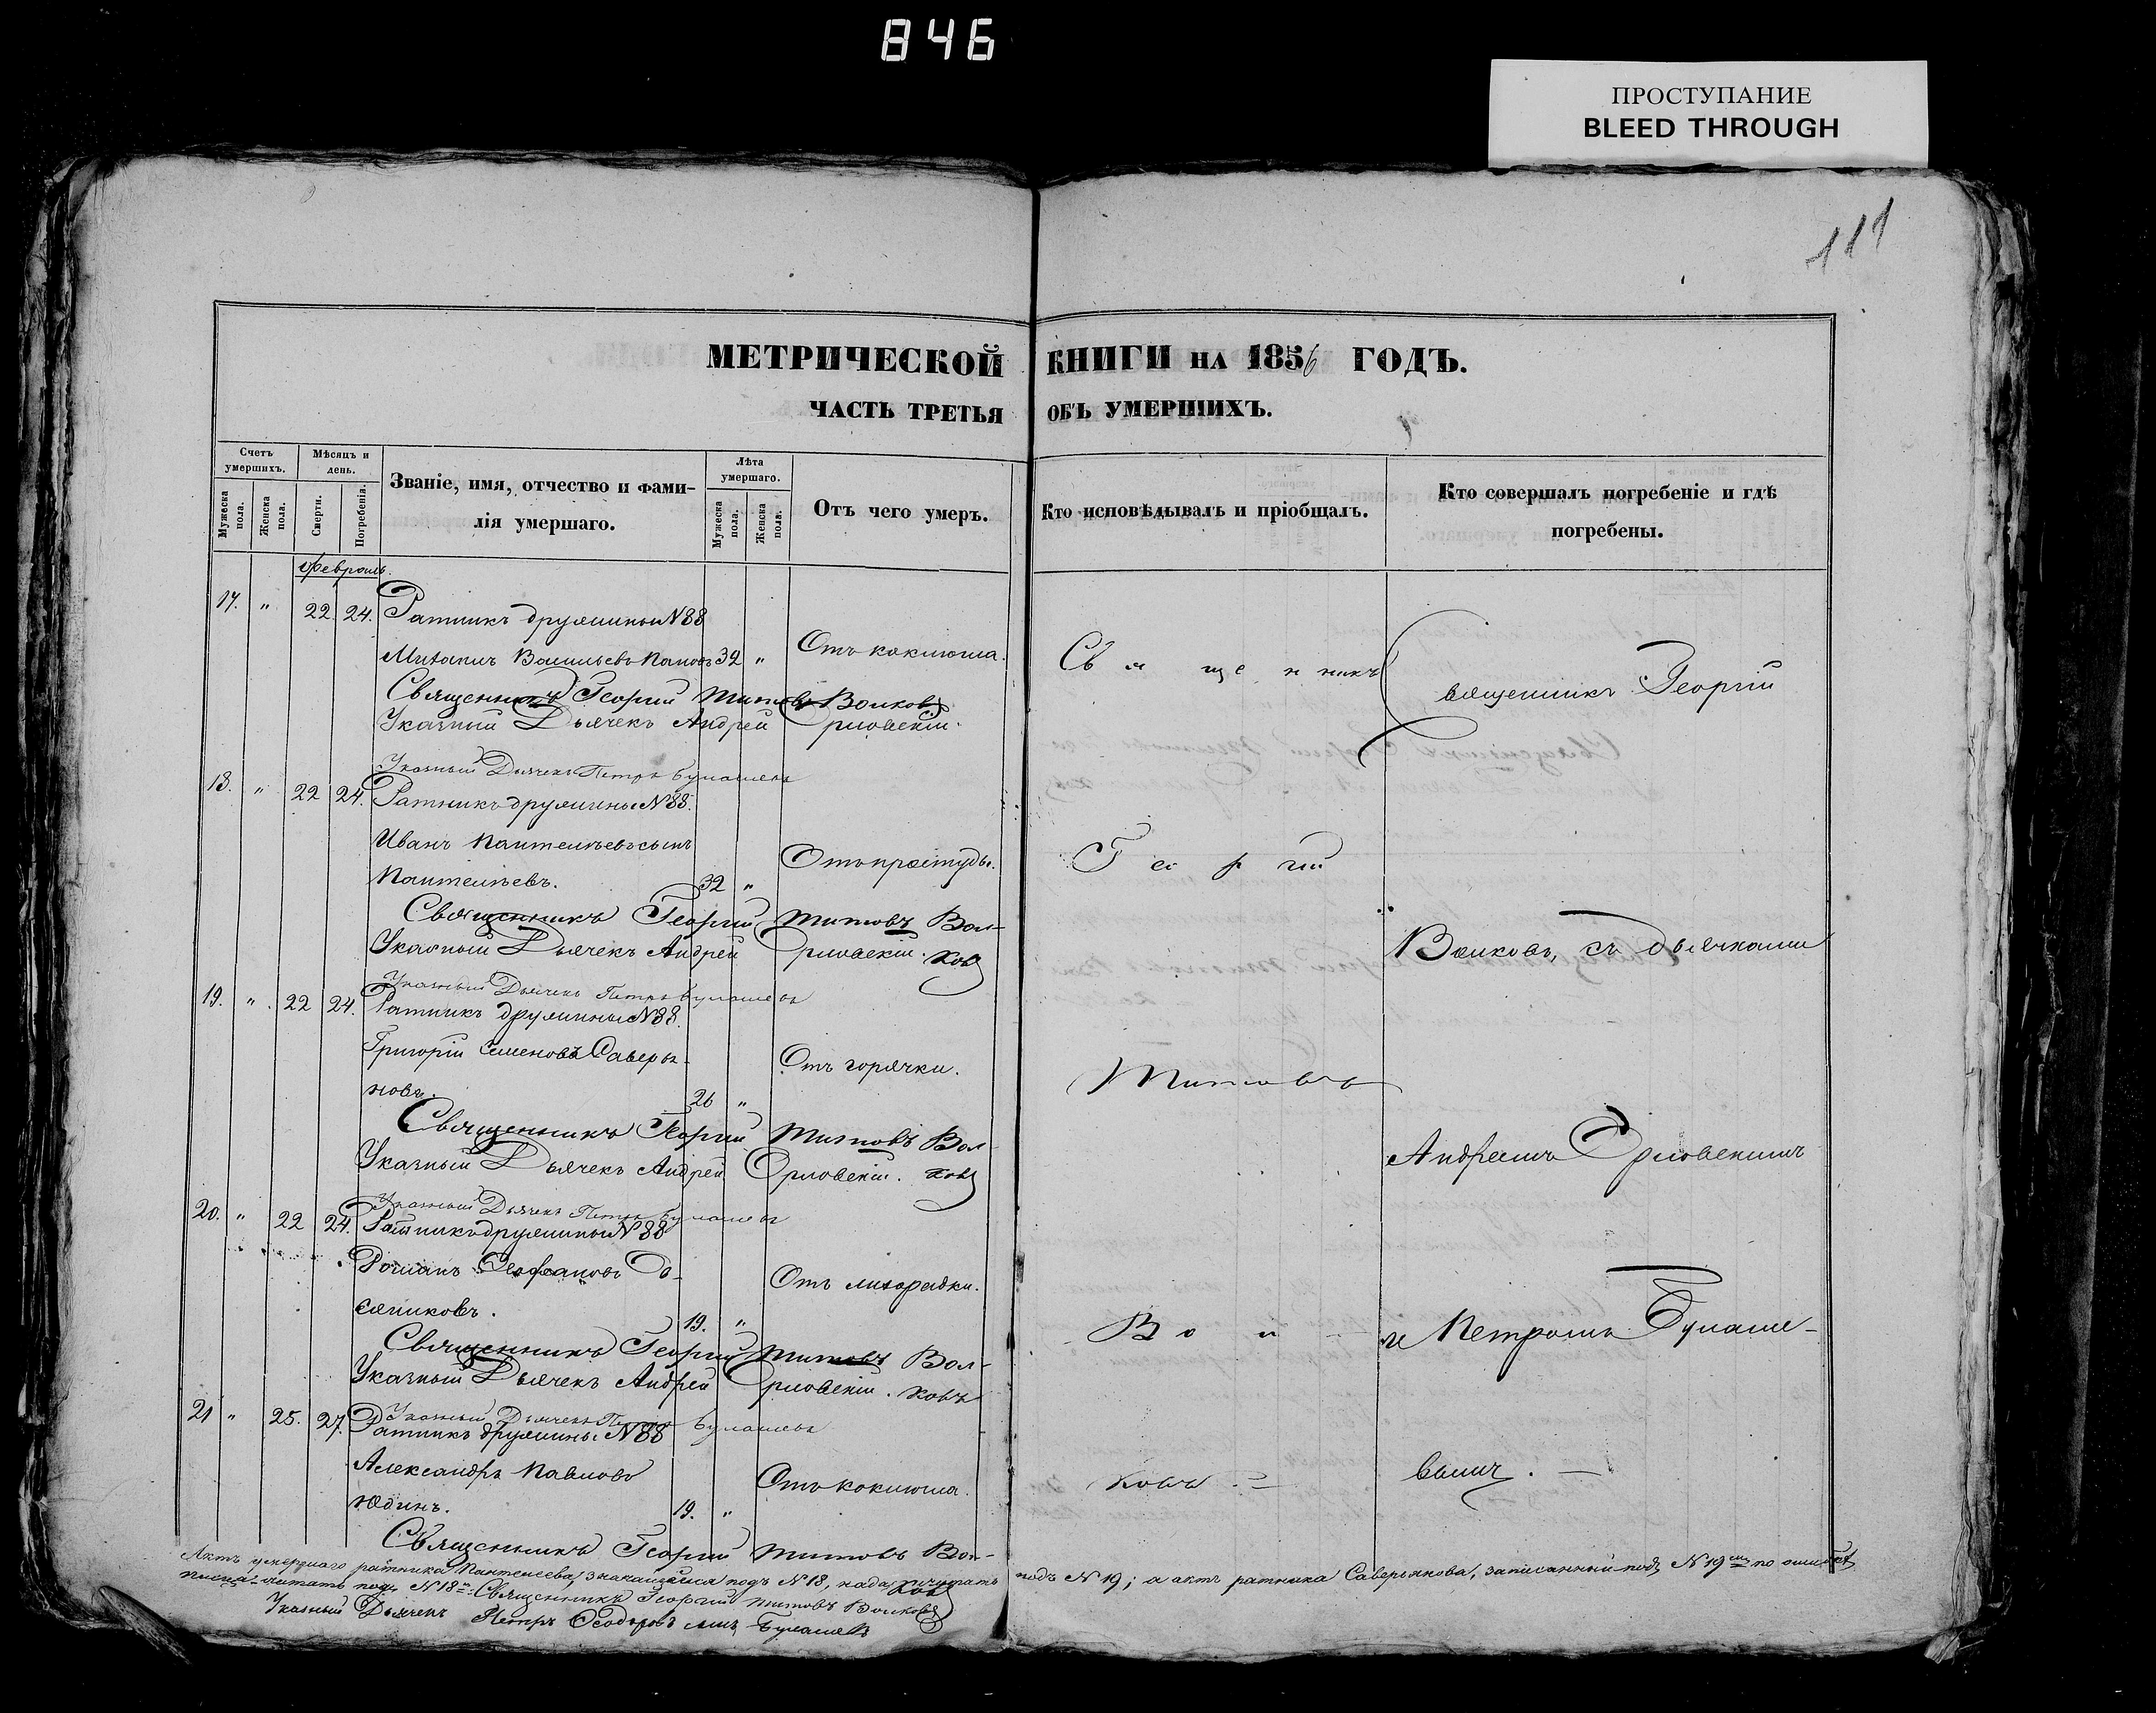 846
ПРОСТУПАНИЕ
BLEED THROUGH
111
МЕТРИЧЕСКОЙ КНИГИ НА 1856 ГОДЪ.
ЧАСТЬ ТРЕТЬЯ ОБЪ УМЕРШИХЪ.
Счетъ умершихъ.
Мужеска пола.
Женска пола.
Мѣсяцъ и день.
Смерти.
Погребенія.
Званіе, имя, отчество и фамилія умершаго.
Лѣта умершаго.
Мужеска пола.
Женска пола.
Отъ чего умеръ.
Кто исповѣдывалъ и пріобщалъ.
Кто совершалъ погребеніе и гдѣ погребены.
Февраль.
17. " 22 24. Ратникъ дружины N 88
Михаилъ Васильевъ Паповъ 32 " Отъ коклюша.
Священникъ Георгій Титовъ Волковъ
Указный Дьячекъ Андрей Орловскій.
Указный Дьячекъ Петръ Булашевъ
18. " 22 24. Ратникъ дружины N 88.
Иванъ Пантелѣевъ сынъ
Пантелѣевъ. 32 " Отъ простуды.
Священникъ Георгій Титовъ Волковъ
Указный Дьячекъ Андрей Орловскій.
Указный Дьячекъ Петръ Булашевъ
19. " 22 24. Ратникъ дружины N 88.
Григорій Семеновъ Саверья-
новъ. 26 " Отъ горячки.
Священникъ Георгій Титовъ Волковъ
Указный Дьячекъ Андрей Орловскій.
Указный Дьячекъ Петръ Булашевъ
20. " 22 24. Ратникъ дружины N 88
Романъ Феофановъ
19. " Отъ лихорадки.
Священникъ Георгій Титовъ Волковъ
Указный Дьячекъ Андрей Орловскій.
Указный Дьячекъ Петръ Булашевъ
21 " 25. 27. Ратникъ дружины N 88
Александръ Павловъ
Юдинъ. 19. " Отъ коклюша.
Священникъ Георгій Титовъ Волковъ
Священникъ
Георгій
Титовъ
Вол-
ковъ. =
Священникъ Георгій
Волковъ, съ дьячками
Андреемъ Орловскимъ
и Петромъ Булаше-
вымъ. —
Актъ умершаго ратника Пантелеева, значащійся подъ N 18, надо читать подъ N 19; а актъ ратника Саверьянова, записанный подъ N 19мъ по ошибкѣ
писца читать подъ N 18мъ. Священникъ Георгій Титовъ Волковъ
Указный Дьячекъ Петръ Ѳеодоровъ сынъ Булашевъ